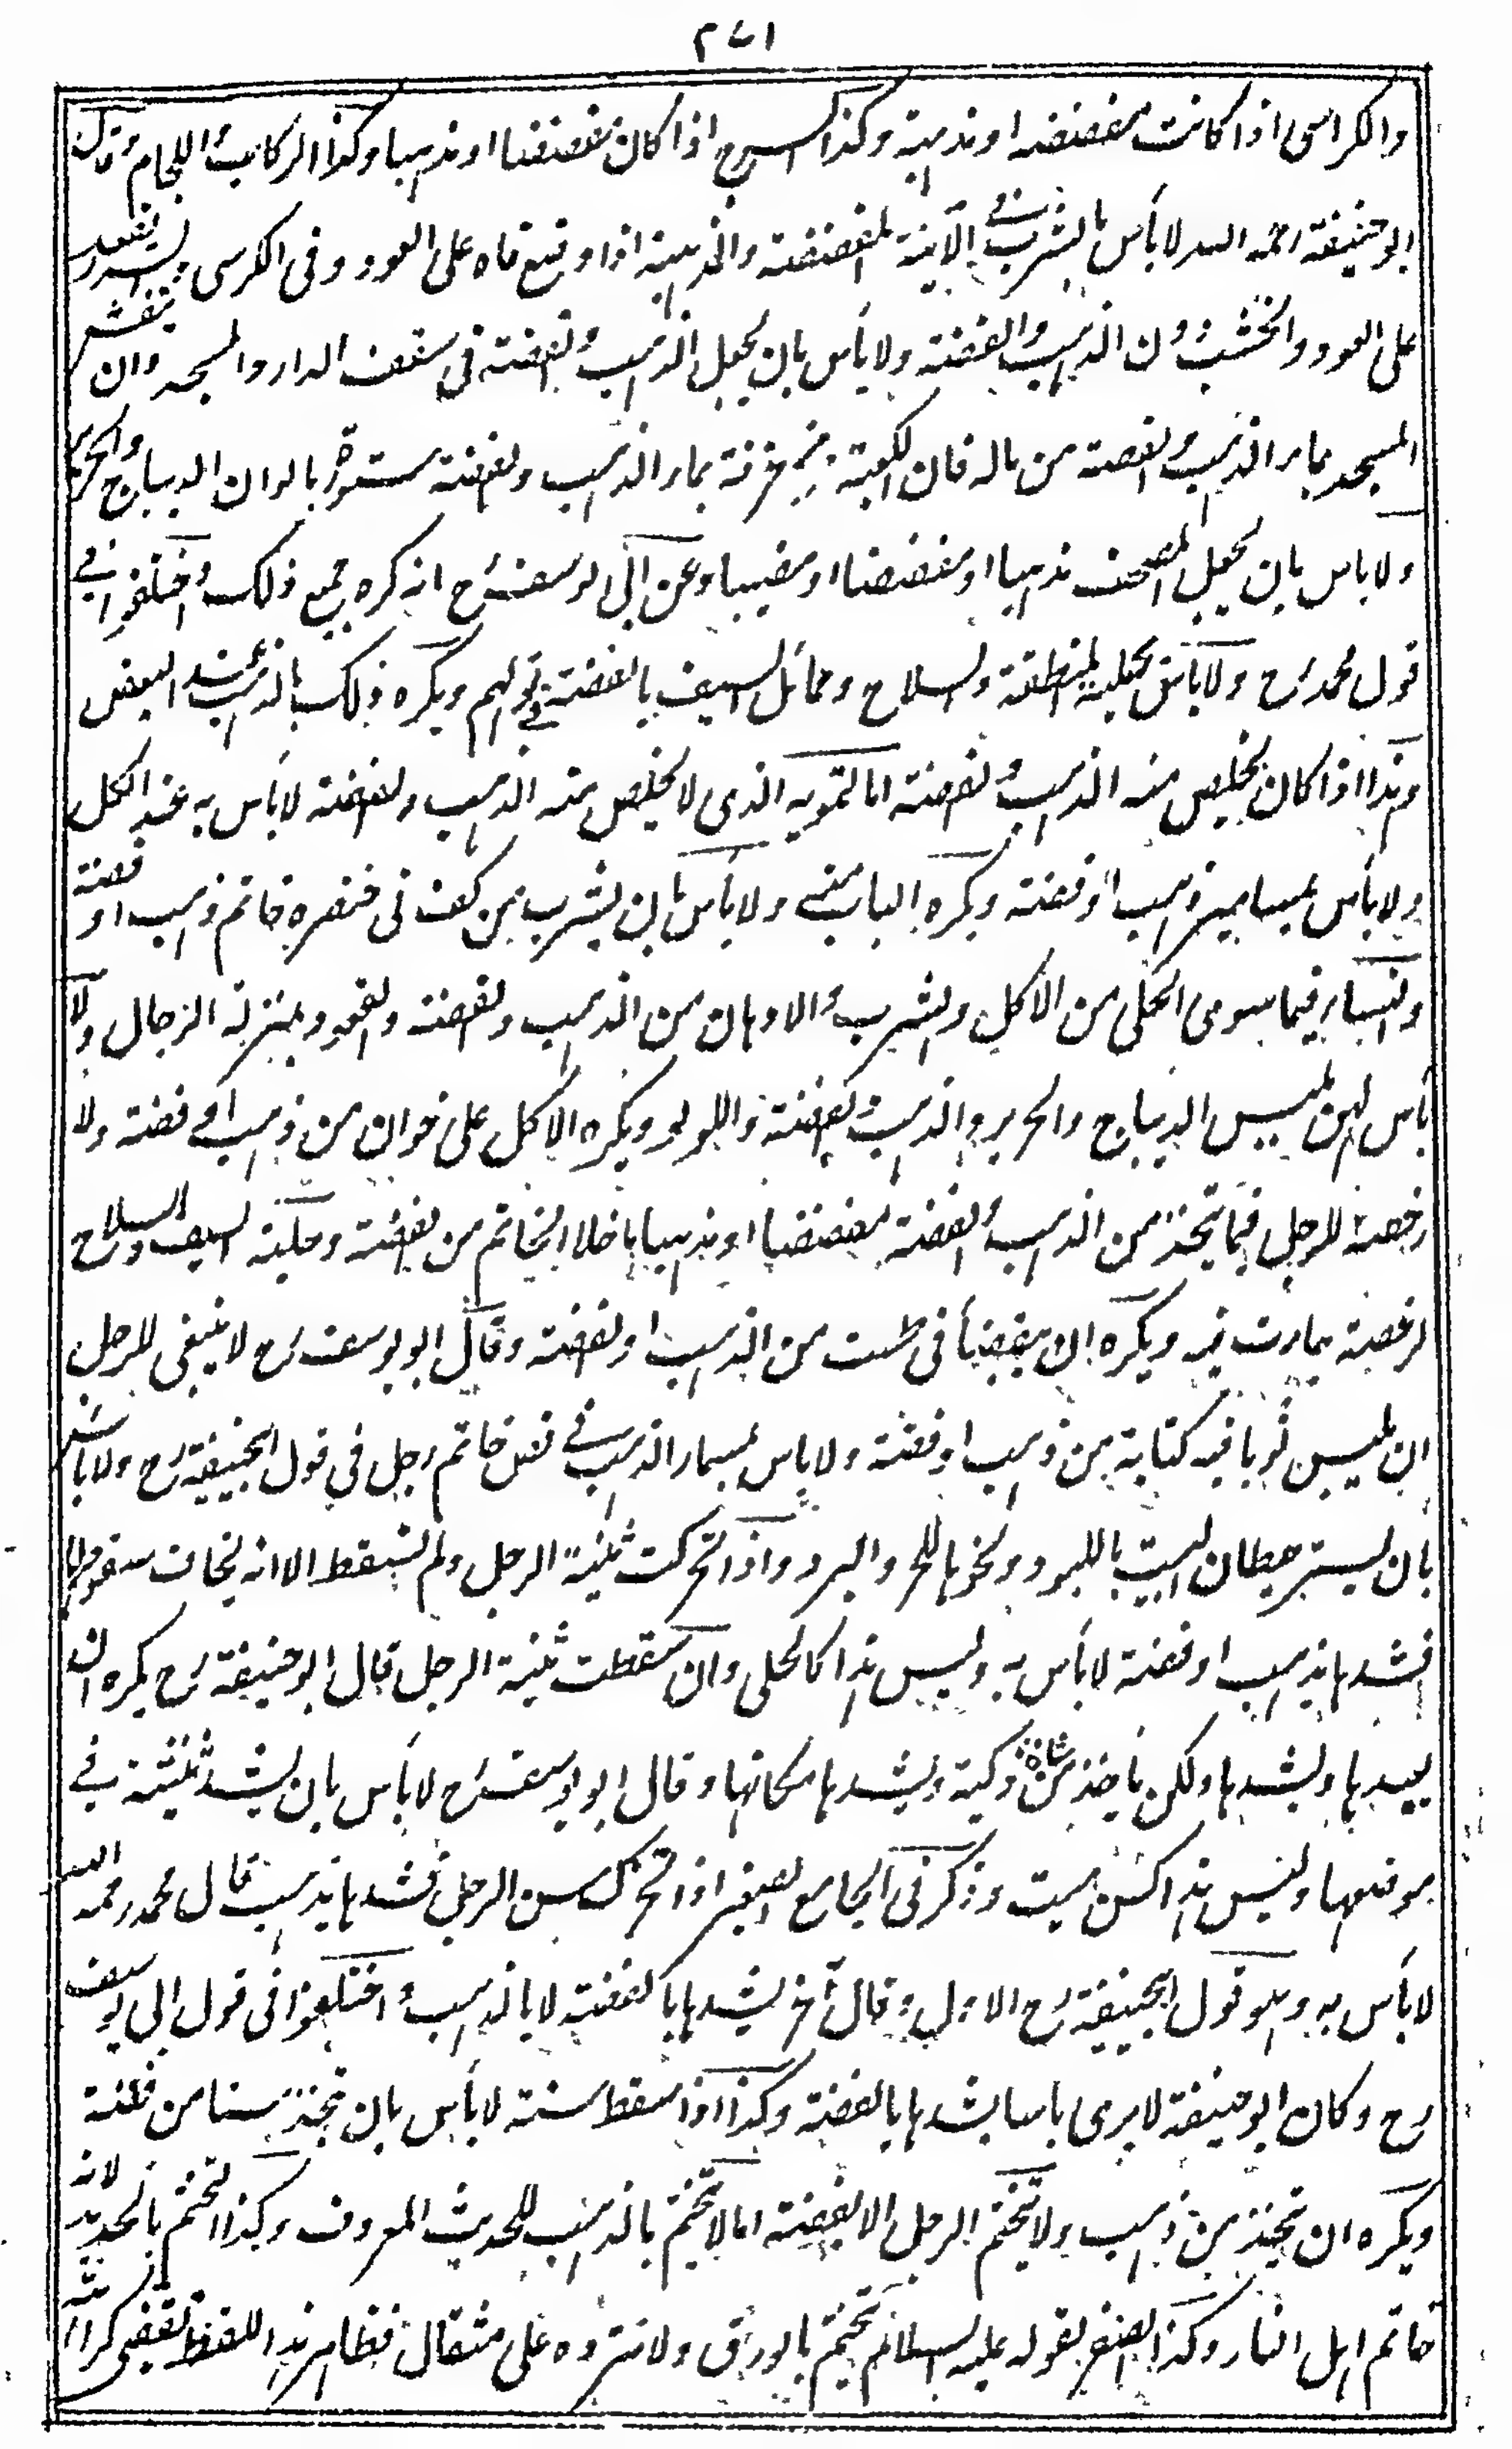 ٢٧١
والكراسى اذا كانت مفضضة او مذهبة وكذا السرج اذا كان مفضضا او مذهبا وكذا الركاب واللجام وقال
ابو حنيفة رحمه الله لا بأس بالشرب في الآنية المفضضة والمذهبة اذا وضع فاه على العود وفى الكرسى والسرير يقعد
على العود والخشب دون الذهب والفضة ولا بأس بان يجعل الذهب والفضة فى سقف الدار والمسجد وان ينقش
المسجد بماء الذهب والفضة من ماله فان الكعبة مزخرفة بماء الذهب والفضة مستورة بالوان الديباج والحرير
ولا باس بان يجعل المصحف مذهبا او مفضضا او مضببا وعن ابى يوسف رح انه كره جميع ذلك واختلفوا في
قول محمد رح ولا بأس بتحلية المنطقة والسلاح وحمائل السيف بالفضة في قولهم ويكره ذلك بالذهب عند البعض
وهذا اذا كان يخلص منه الذهب والفضة اما التمويه الذى لا يخلص منه الذهب والفضة لا بأس به عند الكل
ولا بأس بمسامير ذهب او فضة ويكره الباب منه ولا بأس بان يشرب من كف فى خنصره خاتم ذهب او فضة
والنساء فيما سوى الحلى من الاكل والشرب والادهان من الذهب والفضة والقعود بمنزلة الرجال ولا
بأس لهن بلبس الديباج والحرير والذهب والفضة واللولو ويكره الاكل على خوان من ذهب او فضة ولا
رخصة للرجل فيما يتخذ من الذهب والفضة مفضضا او مذهبا ما خلا الخاتم من الفضة وحلية السيف والسلاح
لرخصة جاءت فيه ويكره ان يتوضأ فى طست من الذهب او الفضة وقال ابو يوسف رح لا ينبغى للرجل
ان يلبس ثوبا فيه كتابة من ذهب او فضة ولا باس بمسمار الذهب في فص خاتم رجل فى قول ابيحنيفة رح ولا باس
بأن يستر حيطان البيت باللبود ونحوها للحر والبرد واذا تحركت ثنية الرجل ولم تسقط الا انه يخاف سقوطها
فشدها بذهب او فضة لا بأس به وليس هذا كالحلى وان سقطت ثنية الرجل قال ابو حنيفة رح يكره ان
يعيدها ويشدها ولكن ياخذ من شاة ذكية ويشدها مكانها وقال ابو يوسف رح لا بأس بان يشد ثنيته في
موضعها وليس هذا كسن ميت وذكر فى الجامع الصغير اذا تحرك سن الرجل فشدها بذهب قال محمد رحمه الله
لا بأس به وهو قول ابيحنيفة رح الاول وقال آخرا يشدها بالفضة لا بالذهب واختلفوا فى قول ابى يوسف
رح وكان ابو حنيفة لا يرى باسا بشدها بالفضة وكذا اذا سقط سنه لا بأس بان يتخذ سنا من فضة
ويكره ان يتخذ من ذهب ولا يتختم الرجل الا بالفضة اما لا يتختم بالذهب للحديث المعروف وكذا التختم بالحديد لانه
خاتم اهل النار وكذا الصفر لقوله عليه السلام تختم بالورق ولا تزده على مثقال فظاهر هذا اللفظ يقتضى كراهة